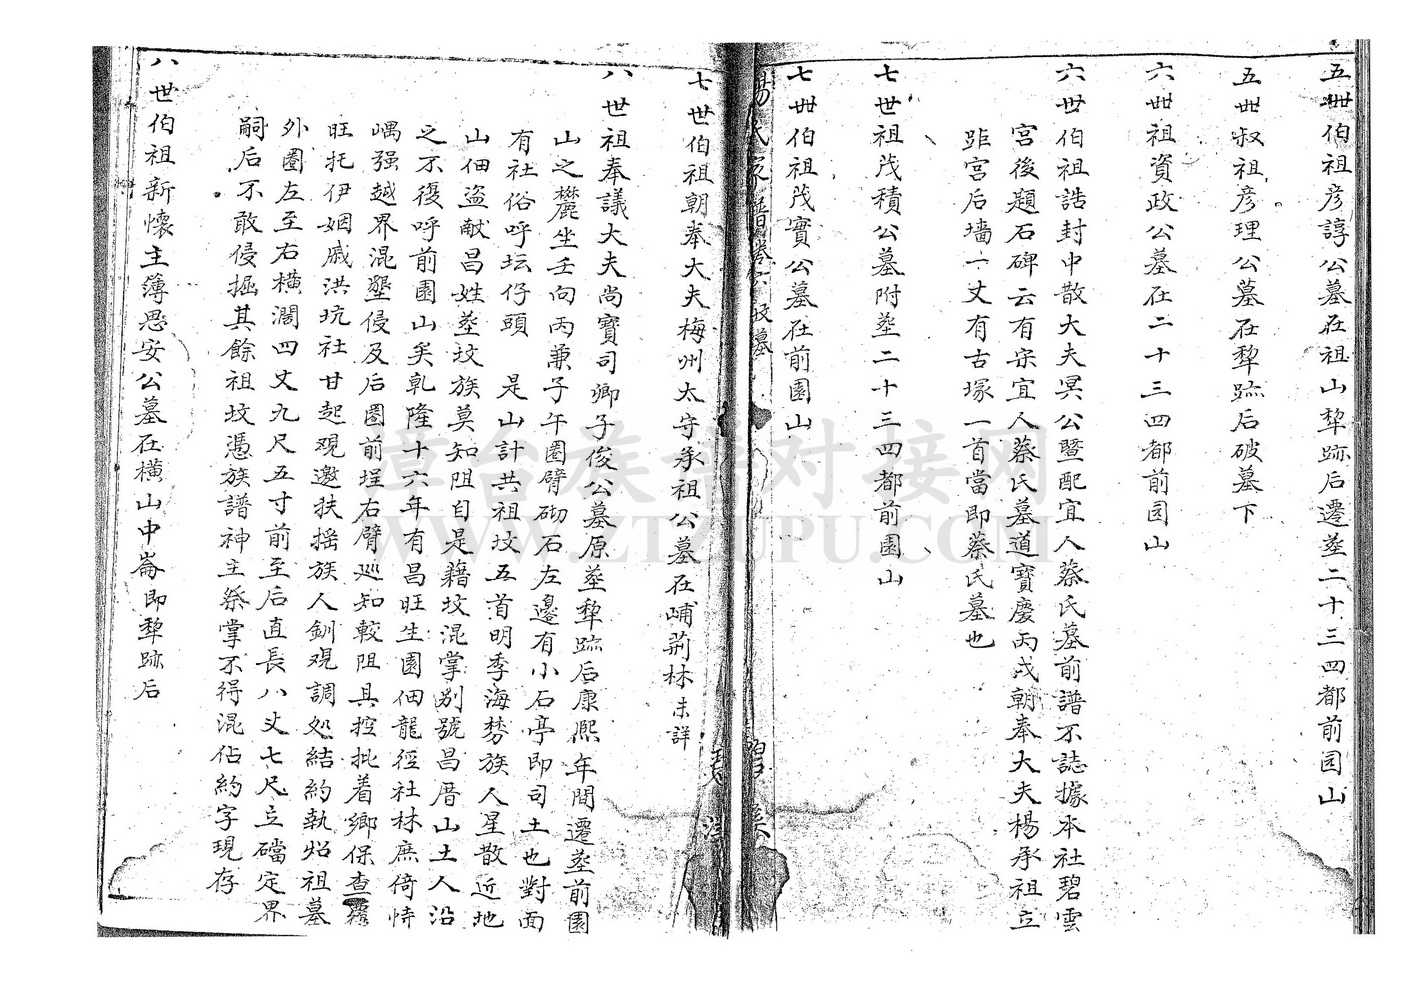 五世伯祖彦諄公墓在祖山犂跡后遷塟二十三四都前园山
五世叔祖彦理公墓在犂跡后破墓下
六世祖資政公墓在二十三四都前园山
六世伯祖誥封中散大夫冥公暨配宜人蔡氏墓前譜不誌據本社碧雲
宫後題石碑云有宋宜人蔡氏墓道寶慶丙戌朝奉大夫楊承祖立
距宫后墻一丈有古塚一首當即蔡氏墓也
七世祖茂積公墓附塟二十三四都前園山
七世伯祖茂實公墓在前園山
楊氏家譜卷六 墓
七世伯祖朝奉大夫梅州太守承祖公墓在峬荊林未詳
八世祖奉議大夫尚寶司卿子俊公墓原塟犂跡后康熙年間遷塟前園
山之麓坐壬向丙兼子午圈臂砌石左邊有小石亭即司土也對面
有社俗呼坛仔頭 是山計共祖坟五首明季海棼族人星散近地
山佃盜献昌姓塟坟族莫知阻自是籍坟混掌别號昌厝山土人沿
之不復呼前園山矣乹隆十六年有昌旺生園佃龍徑社林庶倚恃
嵎强越界混墾侵及后園前埕右臂巡知較阻具控批着鄉保查覆
旺托伊姻戚洪坑社甘起观邀扶摇族人釧观調処結約執炤祖墓
外圈左至右横濶四丈九尺五寸前至后直長八丈七尺立礑定界
嗣后不敢侵掘其餘祖坟憑族譜神主祭掌不得混佔約字現存
八世伯祖新懷主薄愚安公墓在横山中崙即犂跡后